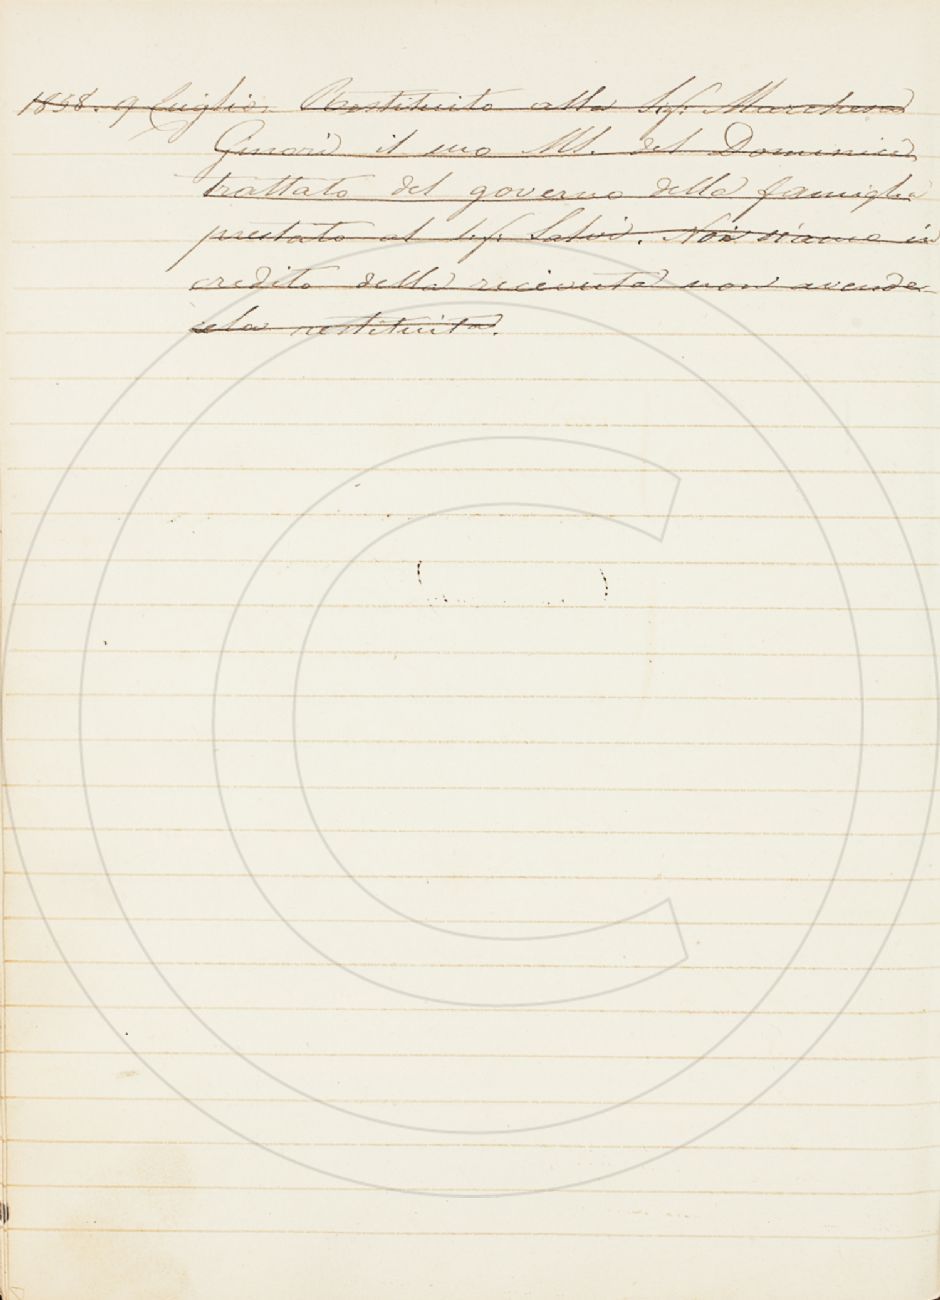 1858. 9 Luglio. Restituito alla Sig.ra Marchesa
Ginori il suo MS. del Dominici
trattato del governo della famiglia
prestato al Sig. Salvi. Noi siamo in
credito della ricevuta non avendo-
cela restituita.